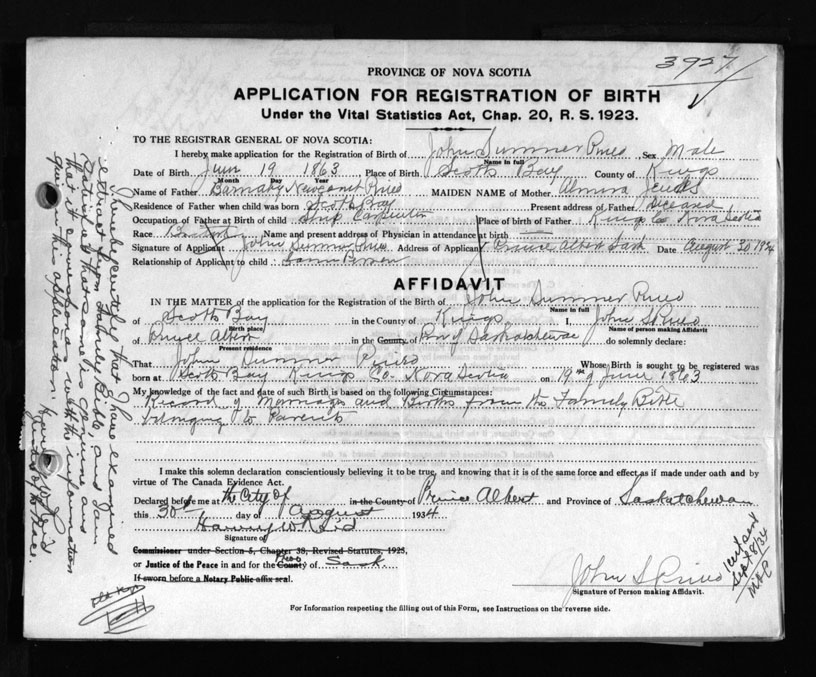 3927
PROVINCE OF NOVA SCOTIA
APPLICATION FOR REGISTRATION OF BIRTH
Under the Vital Statistics Act, Chap. 20, R. S. 1923.
TO THE REGISTRAR GENERAL OF NOVA SCOTIA:
I hereby make application for the Registration of Birth of John Sumner Sex Male
Name in full
Date of Birth June 19 1863 Place of Birth Scots Bay County of Kings
Month Day Year
Name of Father Barnaby MAIDEN NAME of Mother Almira
Residence of Father when child was born Scots Bay Present address of Father
Occupation of Father at Birth of child Ship Carpenter Place of birth of Father Kings Co Nova Scotia
Race Name and present address of Physician in attendance at birth
Signature of Applicant John Sumner Address of Applicant Prince Albert Sask Date August 30 1934
Relationship of Applicant to child Same Person
AFFIDAVIT
IN THE MATTER of the application for the Registration of the Birth of John Sumner
Name in full
of Scots Bay in the County of Kings I, John S
Birth place Name of person making Affidavit
of Prince Albert in the County of Prov of Saskatchewan do solemnly declare:
Present residence
That John Sumner Whose Birth is sought to be registered was
born at Scots Bay Kings Co. Nova Scotia on 19th of June 1863
My knowledge of the fact and date of such Birth is based on the following Circumstances:
Record of Marriages and Births from the Family Bible
belonging to Parents
I make this solemn declaration conscientiously believing it to be true, and knowing that it is of the same force and effect as if made under oath and by
virtue of The Canada Evidence Act.
Declared before me at the City of in the County of Prince Albert and Province of Saskatchewan
this 30th day of August 1934
Harvey W. Reid
Signature of
Commissioner under Section 5, Chapter 38, Revised Statutes, 1923,
or Justice of the Peace in and for the County of Prov Sask
If sworn before a Notary Public affix seal.
John S
Signature of Person making Affidavit.
For Information respecting the filling out of this Form, see Instructions on the reverse side.
I hereby certify that I have examined
extract from Family Bible, and am
satisfied that same is genuine and
that it corresponds with the information
given in this application.
Harvey W. Reid
Justice of the Peace.
Sept 8/34